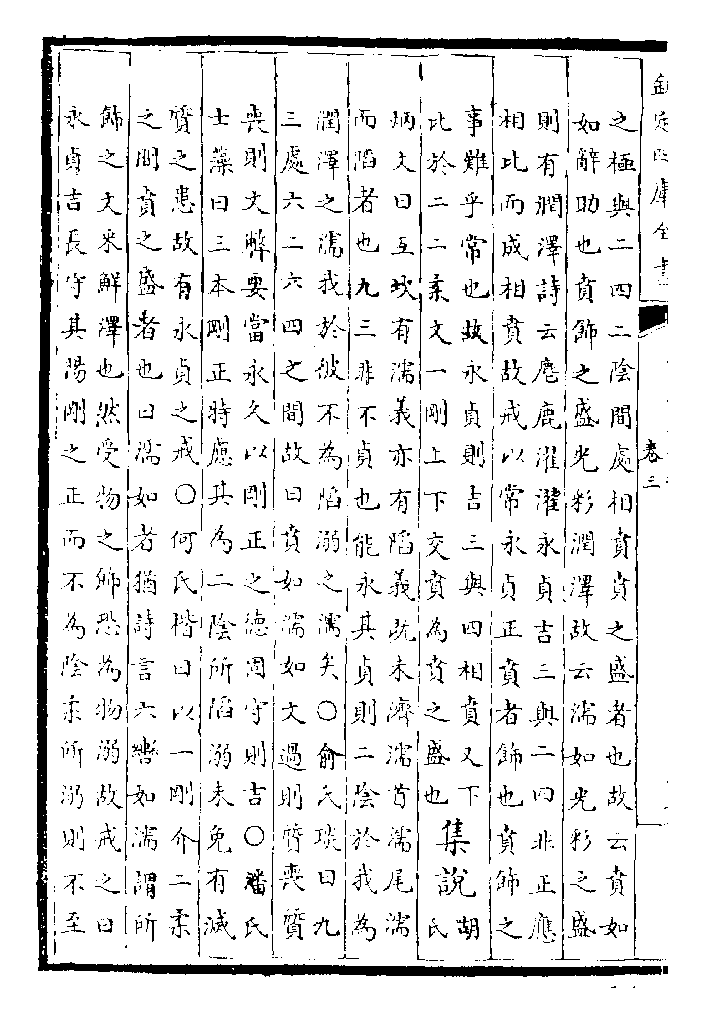 欽定四庫全書
卷三
之極與二四二陰間處相賁賁之盛者也故云賁如
如辭助也賁飾之盛光彩潤澤故云濡如光彩之盛
則有潤澤詩云麀鹿濯濯永貞吉三與二四非正應
相比而成相賁故戒以常永貞正賁者飾也賁飾之
事難乎常也故永貞則吉三與四相賁又下
比於二二柔文一剛上下交賁為賁之盛也
集說
胡
氏
炳文曰互坎有濡義亦有陷義既未濟濡首濡尾濡
而陷者也九三非不貞也能永其貞則二陰於我為
潤澤之濡我於彼不為陷溺之濡矣○俞氏琰曰九
三處六二六四之間故曰賁如濡如文過則質喪質
喪則文弊要當永久以剛正之德固守則吉○潘氏
士藻曰三本剛正特慮其為二陰所陷溺未免有滅
質之患故有永貞之戒○何氏楷曰以一剛介二柔
之間賁之盛者也曰濡如者猶詩言六轡如濡謂所
飾之文采鮮澤也然受物之飾恐為物溺故戒之曰
永貞吉長守其陽剛之正而不為陰柔所溺則不至